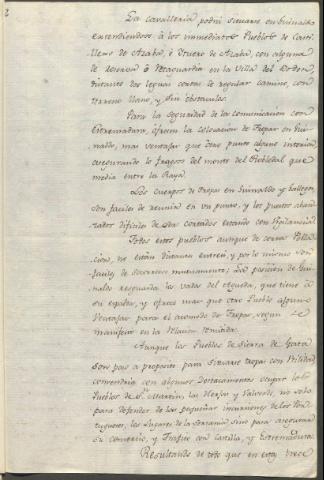 La cavalleria podrá situarse en Guinaldo
extendiendose à los immediatos Pueblos de Casti-
llejo de Azaba, ò Ituero de Azaba, con alguna
de reserva ò Retaguardia en la Villa del Bodon,
distante dos leguas cortas de regular camino, con
terreno llano, y sin obstaculos.
Para la seguridad de la comunicacion con
Extremadura, ofrecen la colocacion de Tropas en Gui-
naldo, mas ventajas que otro punto alguno interin
asegurando lo fragoso del monte del Robledal que
media entre la Raya.
Los cuerpos de Tropas en Guinaldo y Gallegos,
son faciles de reunir en un punto, y los puestos abanz-
zados dificiles de ser cortados estando con vigilancia
Todos estos pueblos aunque de corta Pobla-
cion, no estan distantes entre si, y por lo mismo son
faciles de socorrerse mutuamente; La posicion de Gui-
naldo resguarda los vados del Agueda, que tiene à
su espalda, y ofrece mas que otro Pueblo alguno
Ventajas para el acomodo de Tropas, segun se
manifiesta en la Relacion remitida.
Aunque los Pueblos de Sierra de Gata
son poco a proposito para situarse tropas con utilidad
convendria con algunos Destacamentos ocupar los
Pueblos de Sn. Martin, la Hoyos y Valverde, no solo
para defender de las pequeñas incursiones de los Por-
tugueses, los Lugares de la Serranía sino para asegurar
su comercio, y Trafico con Castilla, y Extremadura.
Resultando de todo que en esta breve